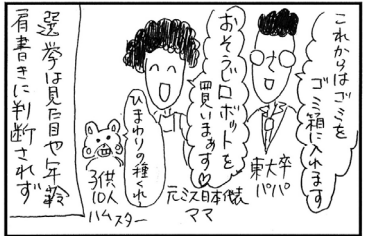 これからはゴミを
ゴミ箱に入れます
東大卒
パパ
おそうじロボットを
買いまぁす♡
元ミス日本代表
ママ
ひまわりの種くれ
子供
10人
ハムスター
選挙は見た目や年齢
肩書きに判断されず